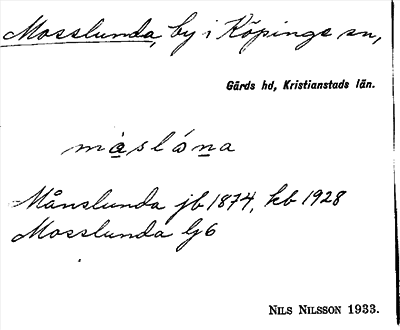 Mosslunda, by i Köpinge sn,
Gärds hd, Kristianstads län.
màslóna
Månslunda jb 1874, kb 1928
Mosslunda Gj 6
NILS NILSSON 1933.